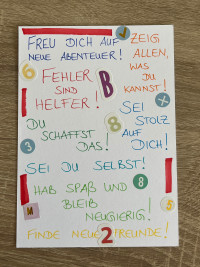 FREU DICH AUF
NEUE ABENTEUER!
ZEIG
ALLEN,
WAS
DU
KANNST!
6
FEHLER
SIND
HELFER!
B
X
SEI
STOLZ
AUF
DICH!
DU
SCHAFFST
DAS!
8
3
SEI DU SELBST!
HAB SPAẞ UND
BLEIB
NEUGIERIG!
8
M
FINDE NEUE FREUNDE!
2